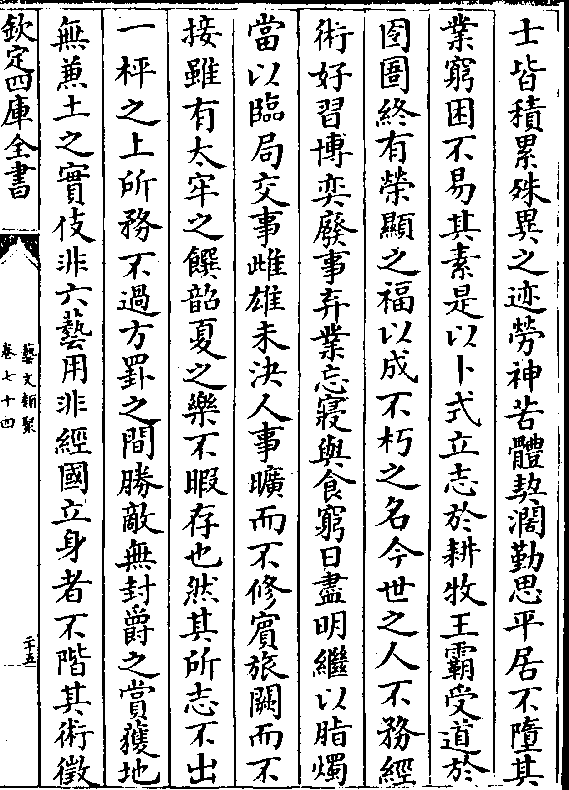 士皆積累殊異之迹勞神苦體契濶勤思平居不墮其
業窮困不易其素是以卜式立志於耕牧王霸受道於
囹圄終有榮顯之福以成不朽之名今世之人不務經
術好習博奕廢事弃業忘寢與食窮日盡明繼以脂燭
當以臨局交事雌雄未決人事曠而不修賓旅闕而不
接雖有太牢之饌韶夏之樂不暇存也然其所志不出
一枰之上所務不過方罫之間勝敵無封爵之賞獲地
無兼土之實伎非六藝用非經國立身者不階其術徵
欽定四庫全書
藝文類聚
卷七十四
二十五